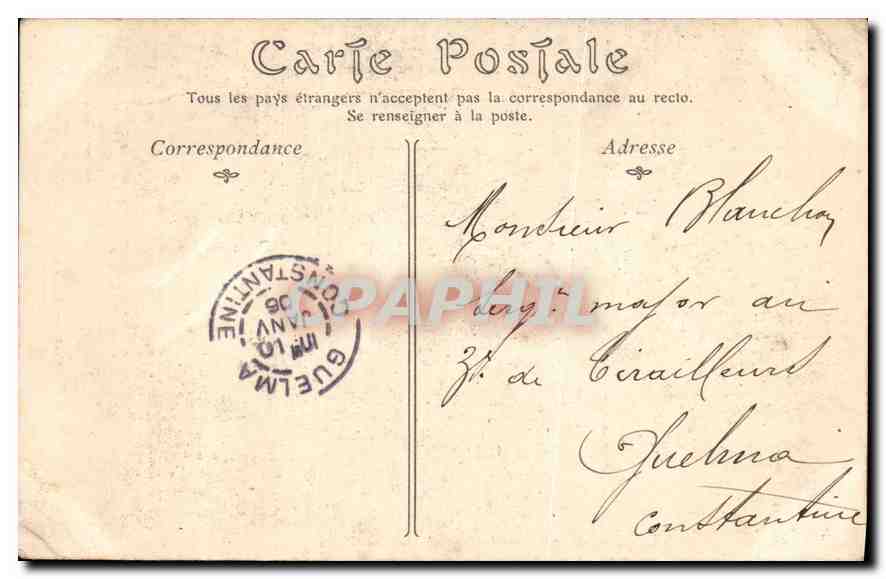 Carte Postale
Tous les pays étrangers n'acceptent pas la correspondance au recto.
Se renseigner à la poste.
Correspondance
Adresse
Monsieur Blanchon
Sergt major au
3e de Tirailleurs
Guelma
Constantine
GUELMA
CONSTANTINE
10
JANV
06
CPAPHIL